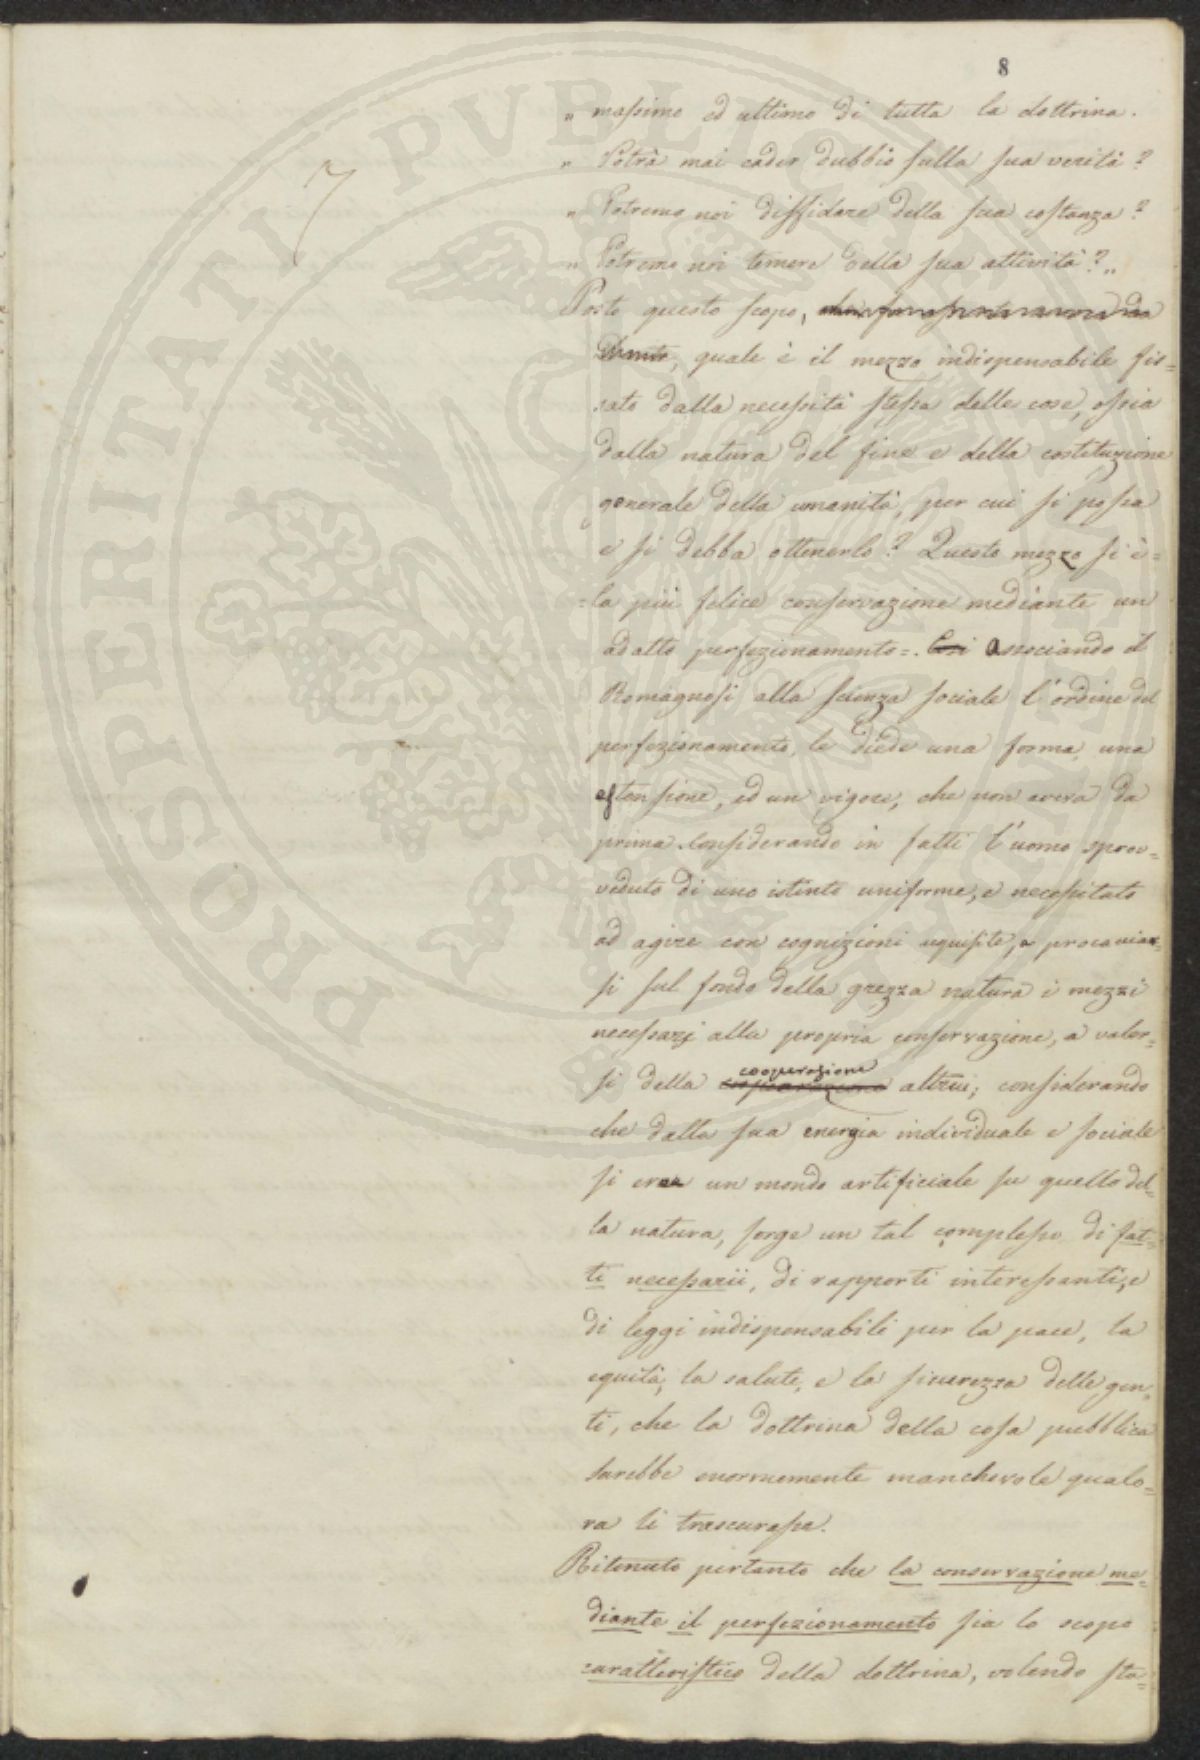 8
7
PROSPERITATI PVBLICAE
„ massimo ed ultimo di tutta la dottrina.
„ Potrà mai cader dubbio sulla sua verità?
„ Potremo noi diffidare della sua costanza?
„ Potremo noi temere della sua attività?„
Posto questo scopo,
, quale è il mezzo indispensabile fis=
sato dalla necessità stessa delle cose, ossia
dalla natura del fine e della costituzione
generale della umanità, per cui si possa
e si debba ottenerlo? Questo mezzo si è=
=la più felice conservazione mediante un
adatto perfezionamento=. Così Associando il
Romagnosi alla scienza sociale l'ordine del
perfezionamento, le diede una forma, una
estensione, ed un vigore, che non aveva da
prima. Considerando in fatti l'uomo sprov=
veduto di uno istinto uniforme, e necessitato
ad agire con cognizioni aquisite, a procacciar=
si sul fondo della grezza natura i mezzi
necessarj alla propria conservazione, a valer=
si della cooperazione altrui; considerando
che dalla sua energia individuale e sociale
si crea un mondo artificiale su quello del=
la natura, sorge un tal complesso di fat=
ti necessarii, di rapporti interessanti, e
di leggi indispensabili per la pace, la
equità, la salute, e la sicurezza delle gen=
ti, che la dottrina della cosa pubblica
sarebbe enormemente manchevole qualo=
ra li trascurasse.
Ritenuto pertanto che la conservazione me=
diante il perfezionamento sia lo scopo
caratteristico della dottrina, volendo sta=